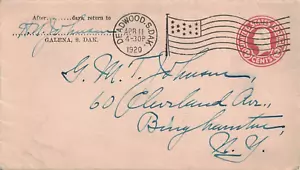 After.........days, return to
GALENA, S. DAK.
DEADWOOD, S.DAK.
APR 11
4-30P
1920
UNITED STATES
2 CENTS 2
G. M. T. Johnson,
60 Cleveland Av.,
Binghamton
N.Y.